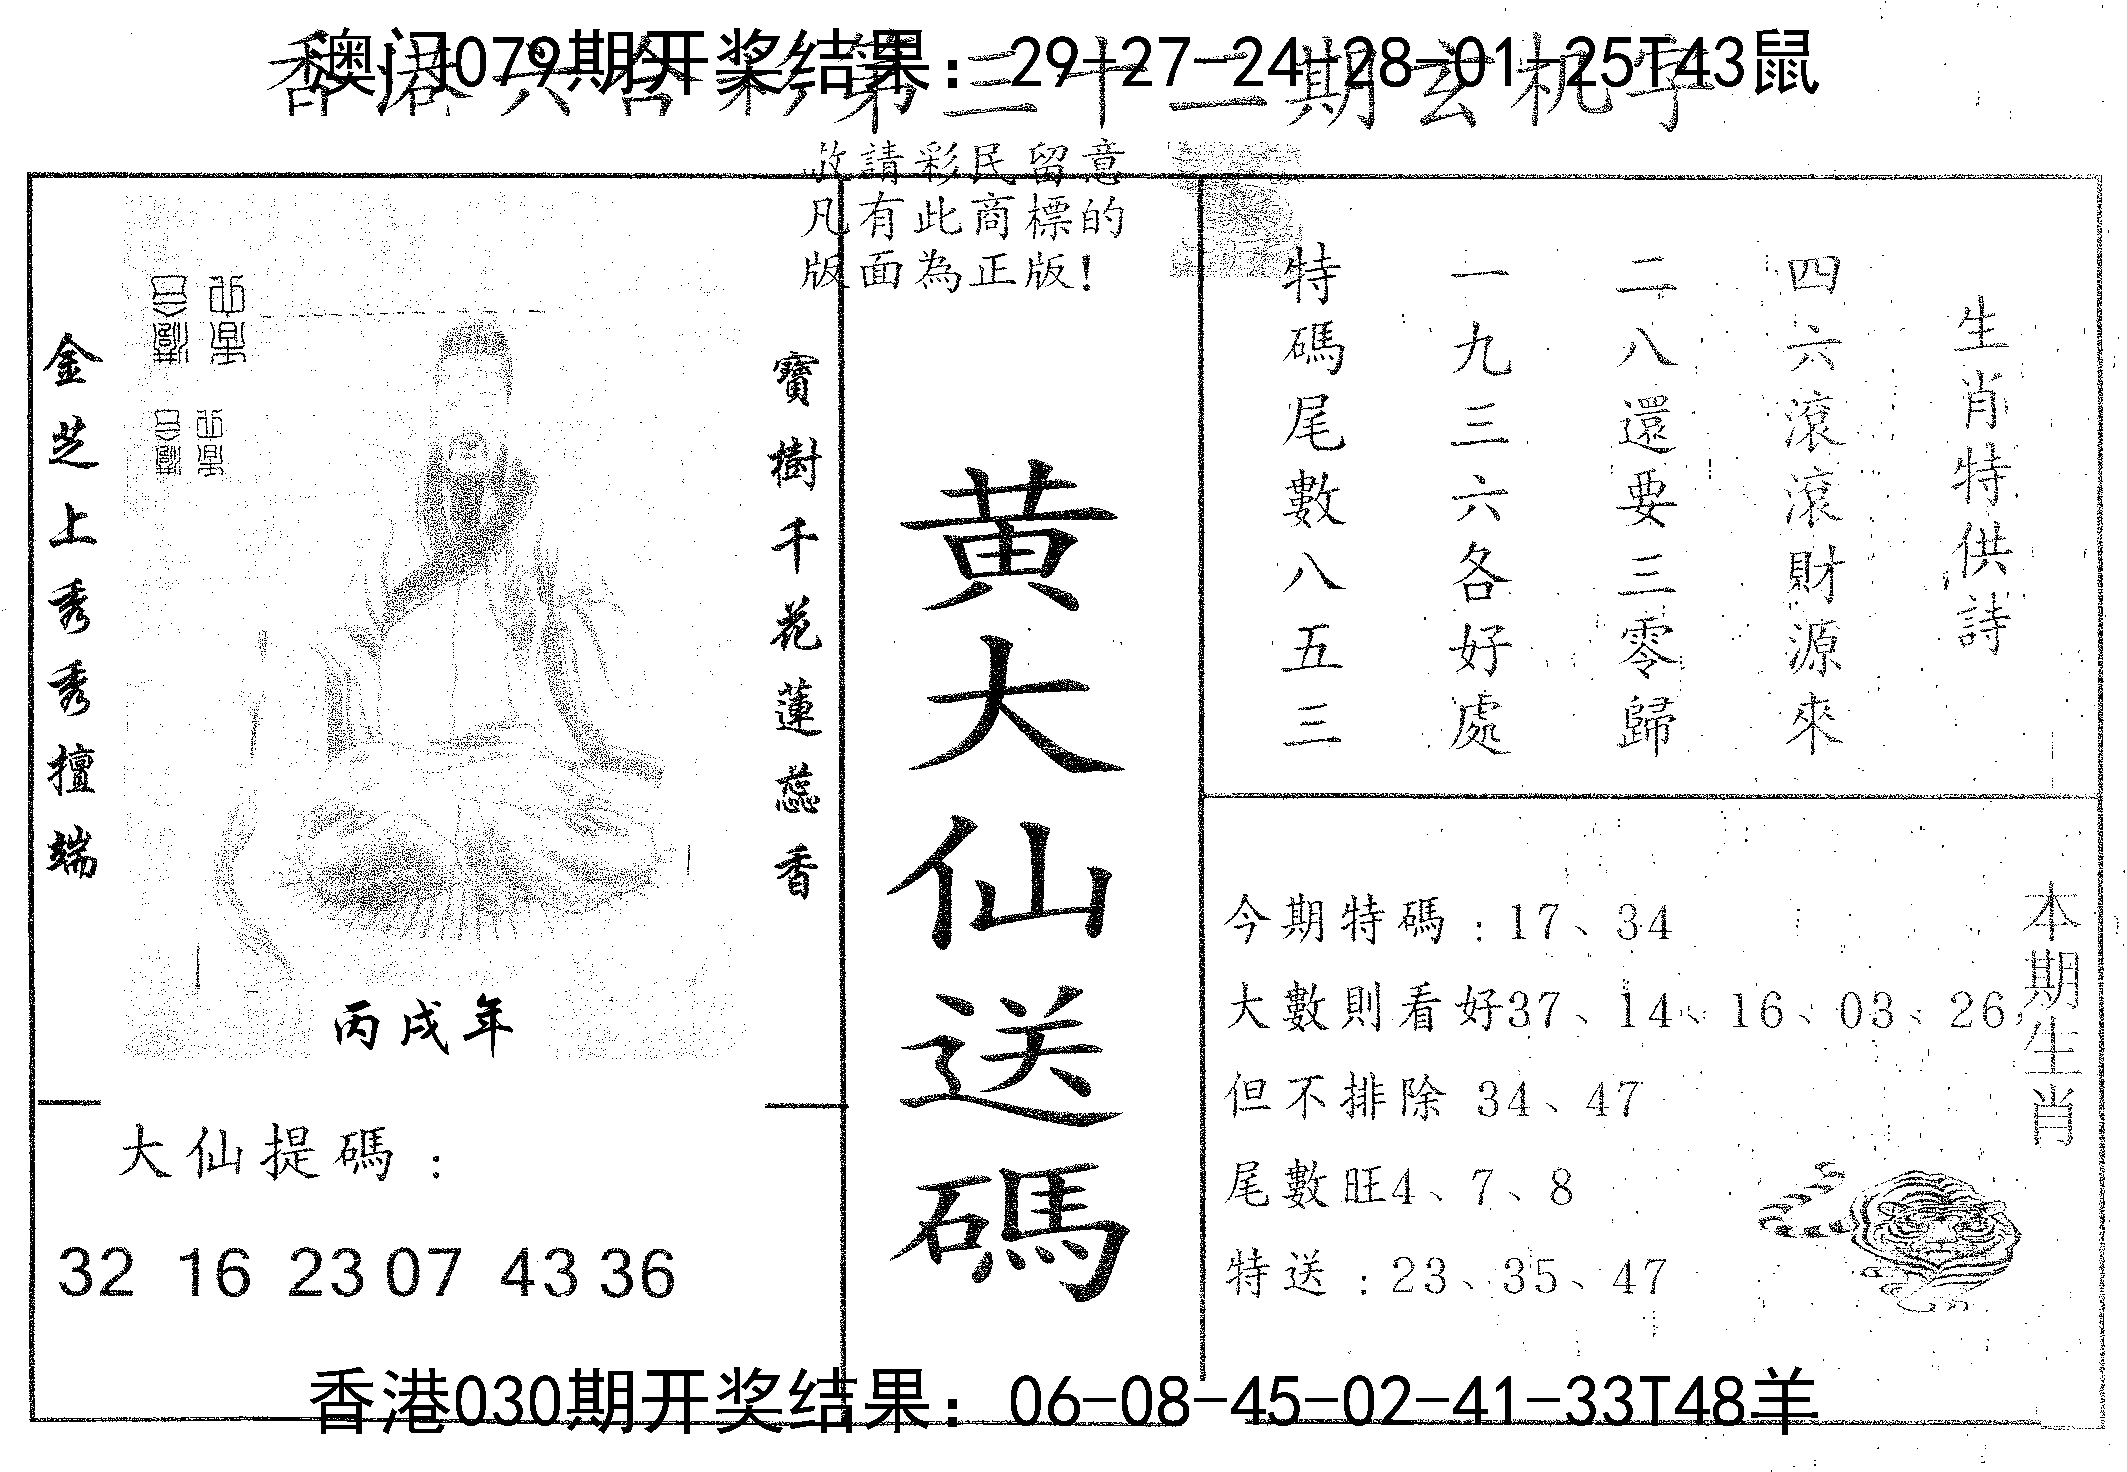 澳门079期开奖结果：29-27-24-28-01-25T43鼠
香港六合彩第三十二期玄机字
敬請彩民留意
凡有此商標的
版面為正版!
生肖特供詩
四六滾滾財源來
二八還要三零歸
一九三六各好處
特碼尾數八五三
黃大仙送碼
寶樹千花蓮蕊香
金芝上秀秀擅端
丙戌年
大仙提碼：
32 16 23 07 43 36
本期生肖
今期特碼：17、34
大數則看好37、14、16、03、26,
但不排除 34、47
尾數旺4、7、8
特送：23、35、47
香港030期开奖结果：06-08-45-02-41-33T48羊